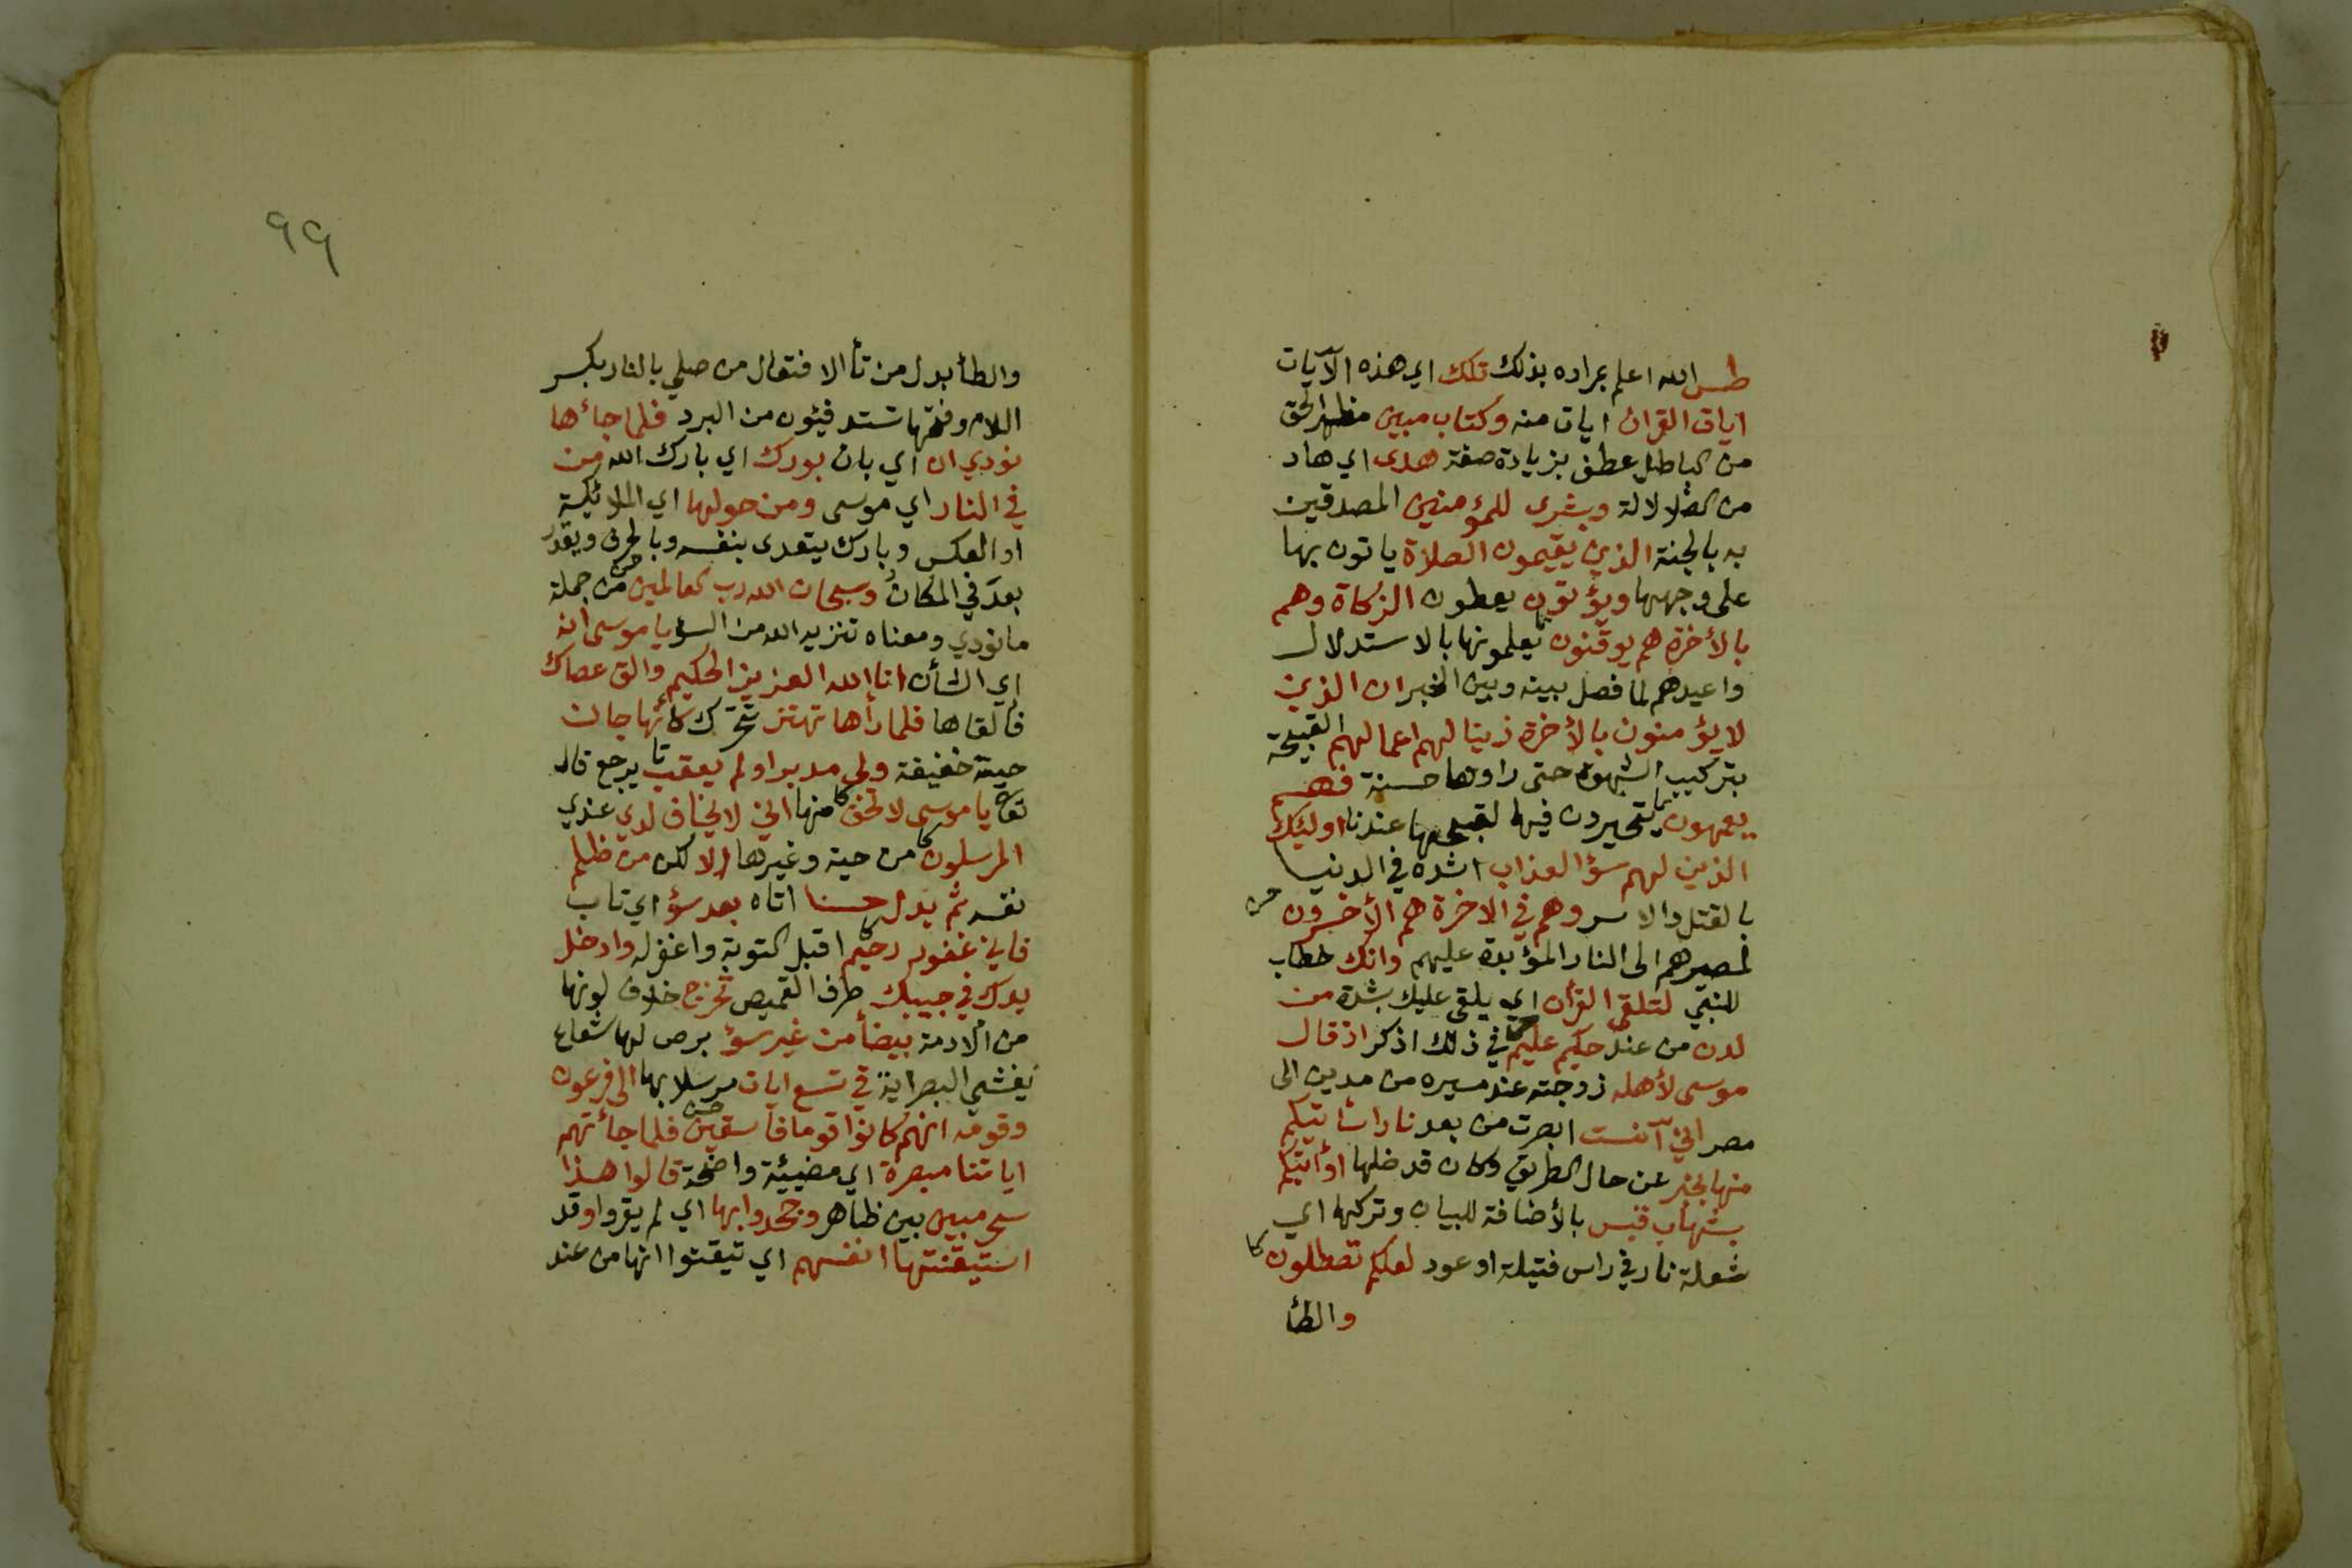 طس الله اعلم بمراده بذلك تلك اي هذه الآيات
ايات القران ايات منه وكتاب مبين مظهر الحق
من الباطل عطف بزيادة صفة هدى اي هاد
من الضلالة وبشرى للمؤمنين المصدقين
به بالجنة الذين يقيمون الصلاة ياتون بها
على وجهها ويؤتون يعطون الزكاة وهم
بالأخرة هم يوقنون يعلمونها بالاستدلال
واعيدهم لما فصل بينه وبين الخبر ان الذين
لا يؤمنون بالأخرة زينا لهم اعمالهم القبيحة
بتركيب الشهوة حتى راوها حسنة فهم
يعمهون يتحيرون فيها لقبحها عندنا اوليئك
الذين لهم سؤ العذاب اشده في الدنيا
بالقتل والاسر وهم في الاخرة هم الأخسرون
لمصيرهم الى النار المؤبدة عليهم وانك خطاب
للنبي لتلقى القرأن اي يلقى عليك بشدة من
لدن من عند حكيم عليم في ذلك اذكر اذ قال
موسى لأهله زوجته عند مسيره من مدين الى
مصر اني آنست ابصرت من بعد نارا سأتيكم
منها بخبر عن حال الطريق وكان قد ضلها او أتيكم
بشهاب قبس بالأضافة للبيان وتركها اي
شعلة نار في راس فتيلة او عود لعلكم تصطلون
والطأ
٩٩
والطأ بدل من تأ الافتعال من صلي بالنار بكسر
اللام وفتحها تستدفئون من البرد فلما جاءها
نودي ان اي بان بورك اي بارك الله من
في النار اي موسى ومن حولها اي الملائكة
او العكس وبارك يتعدى بنفسه وبالحرف ويقدر
بعد في المكان وسبحان الله رب العالمين من جملة
ما نودي ومعناه تنزيه الله من السؤ يا موسى انه
اي الشأن انا الله العزيز الحكيم والق عصاك
فالقاها فلما رأها تهتز تتحرك كأنها جان
حية خفيفة ولى مدبرا ولم يعقب يرجع قال
تعا يا موسى لا تخف منها اني لا يخاف لدي عندي
المرسلون من حية وغيرها الا لكن من ظلم
نفسه ثم بدل حسنا اتاه بعد سؤ اي تاب
فاني غفور رحيم اقبل التوبة واغفر له وادخل
يدك في جيبك طرف القميص تخرج خلاف لونها
من الادمة بيضأ من غير سؤ برص لها شعاع
يغشي البصر اية في تسع ايات مرسلا بها الى فرعون
وقومه انهم كانوا قوما فاسقين فلما جأتهم
اياتنا مبصرة اي مضيئة واضحة قالوا هذا
سحر مبين بين ظاهر وجحدوا بها اي لم يقروا وقد
استيقنتها انفسهم اي تيقنوا انها من عند